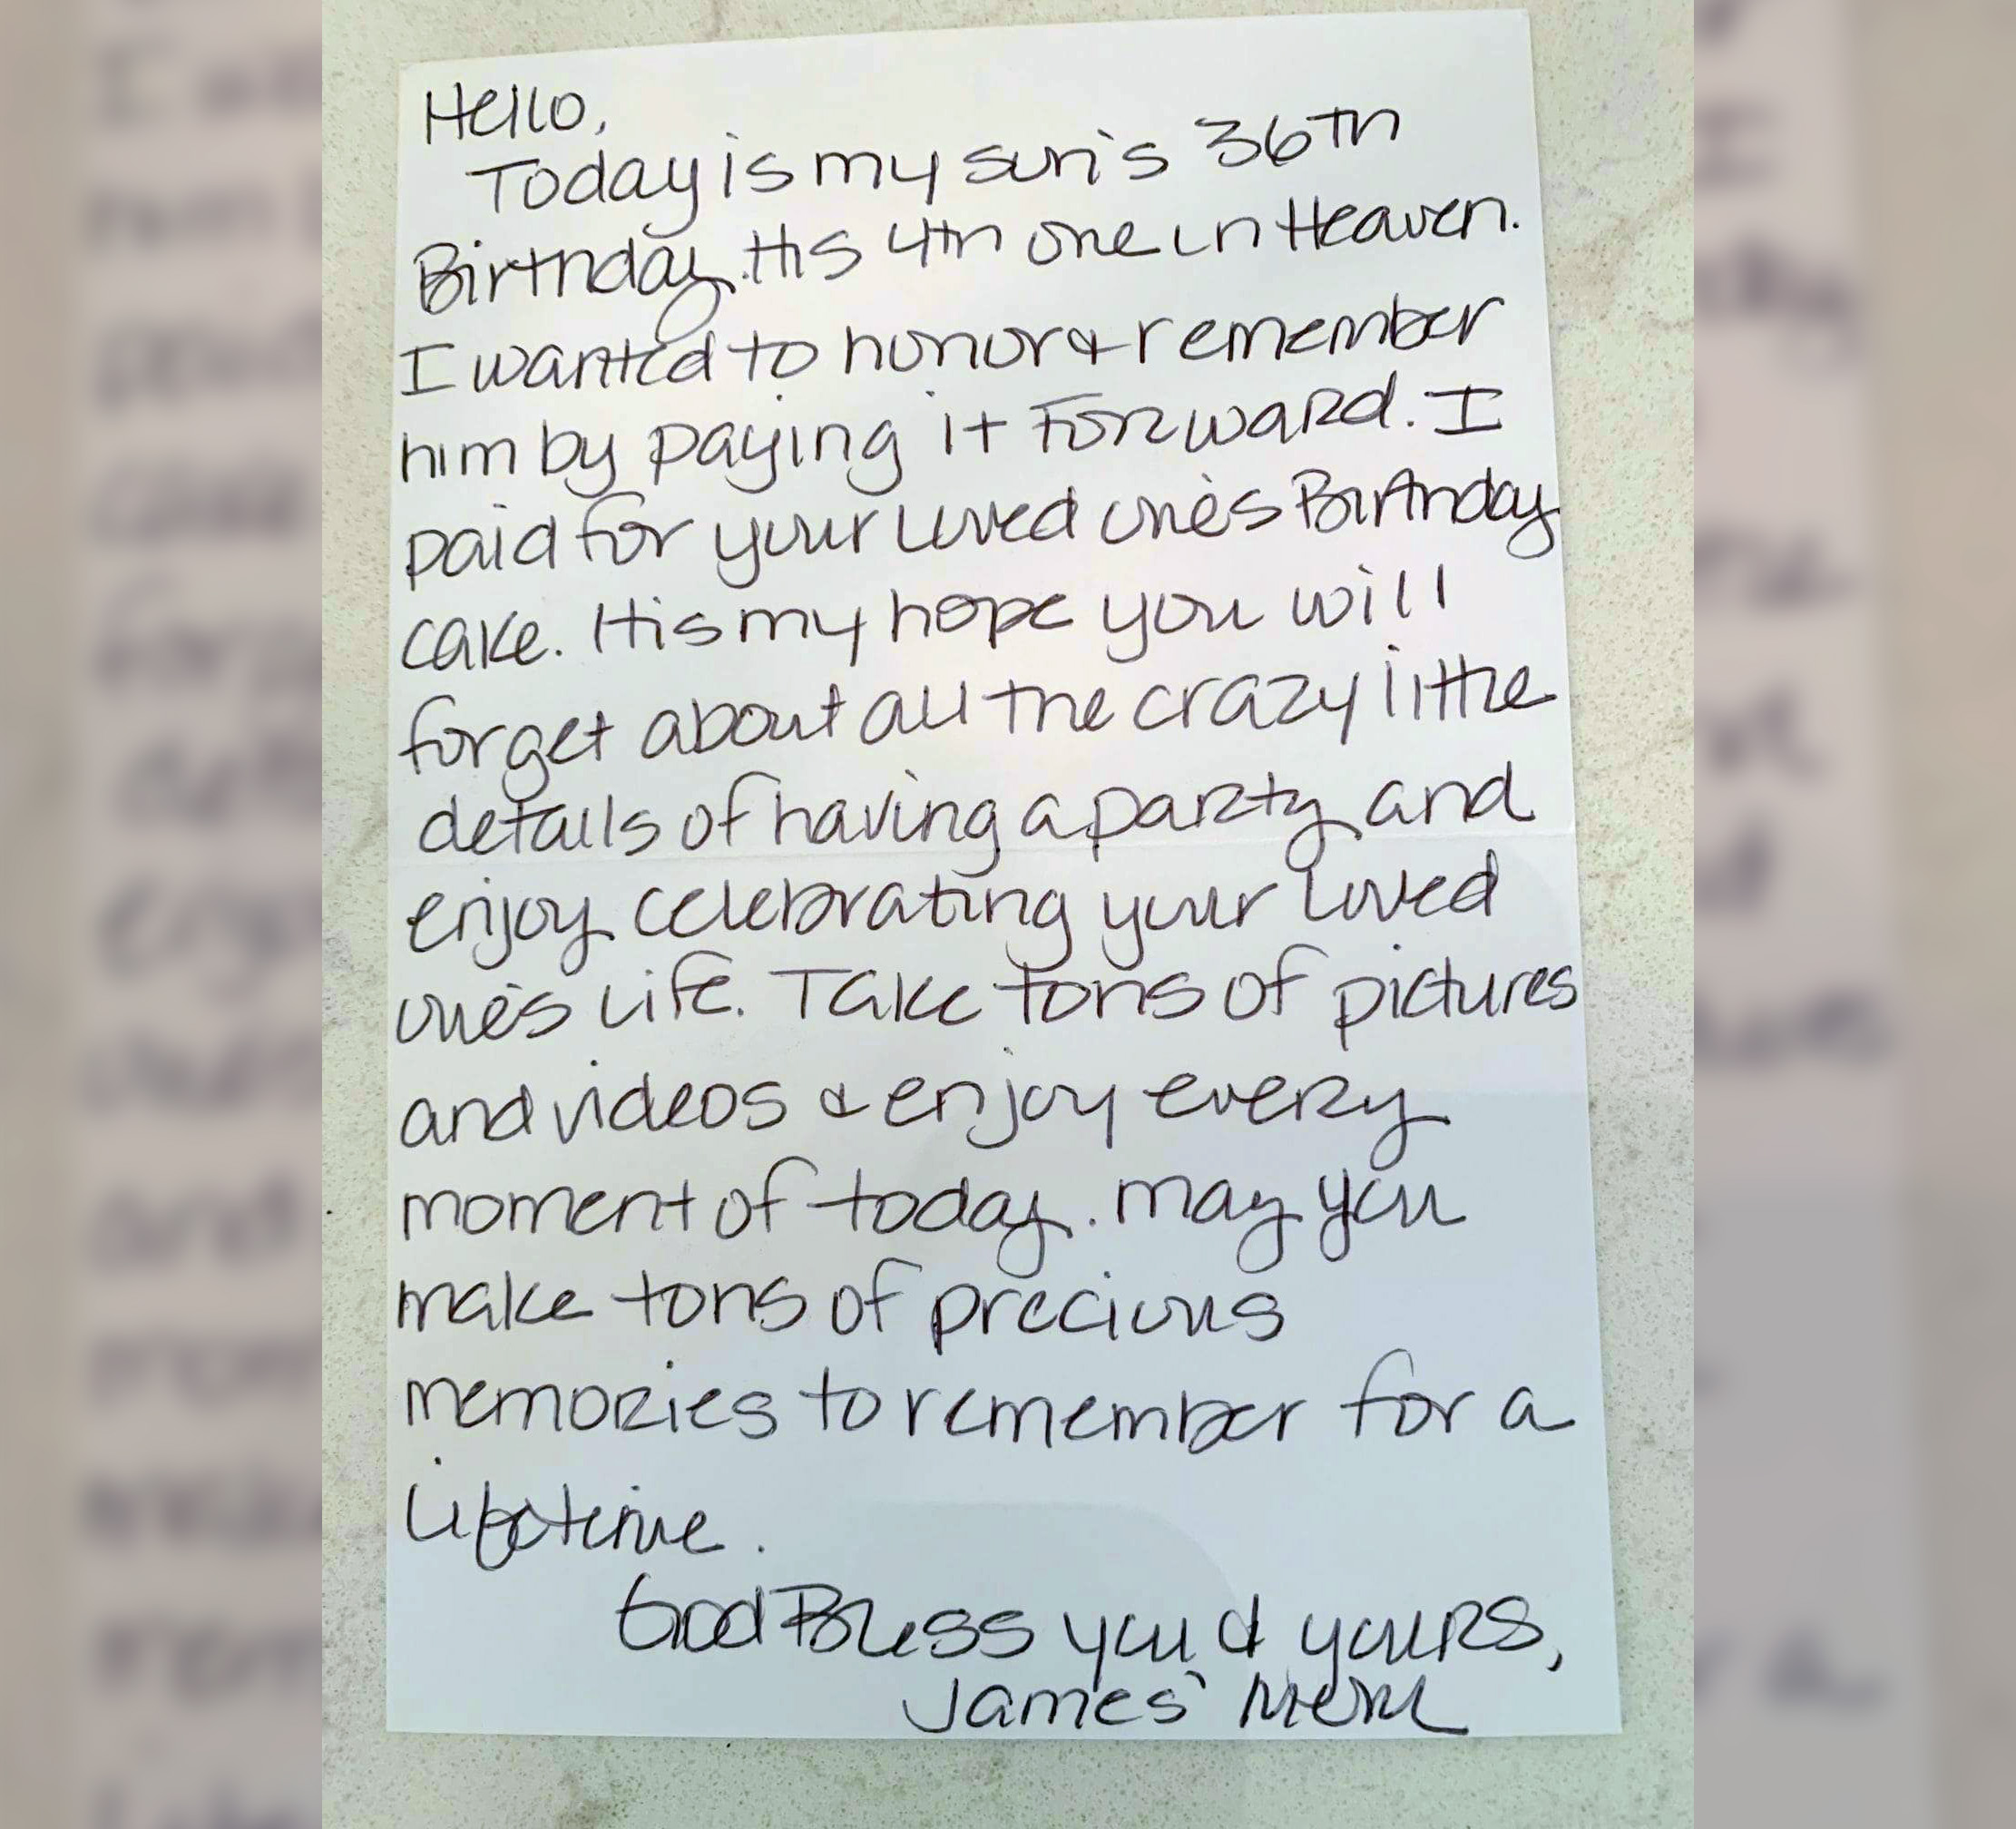 Hello,
Today is my son's 36th
Birthday. His 4th one in Heaven.
I wanted to honor & remember
him by paying it Forward. I
paid for your loved one's Birthday
cake. It is my hope you will
forget about all the crazy little
details of having a party and
enjoy celebrating your loved
one's life. Take tons of pictures
and videos & enjoy every
moment of today. may you
make tons of precious
memories to remember for a
Lifetime.
God Bless you & yours,
James'